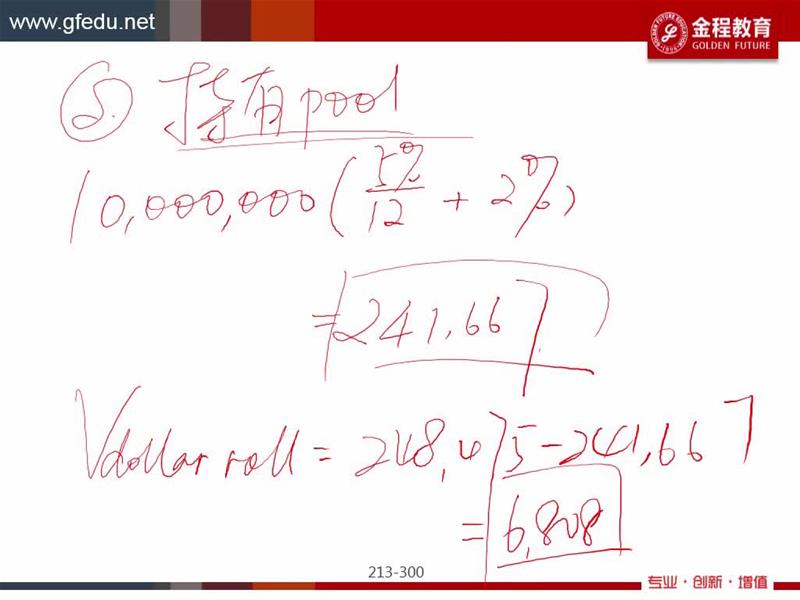 www.gfedu.net
金程教育
GOLDEN FUTURE
⑤. 持有pool
10,000,000 (5%/12 + 2%)
= 241,667
Vdollar roll = 248,475 - 241,667
= 6,808
213-300
专业·创新·增值